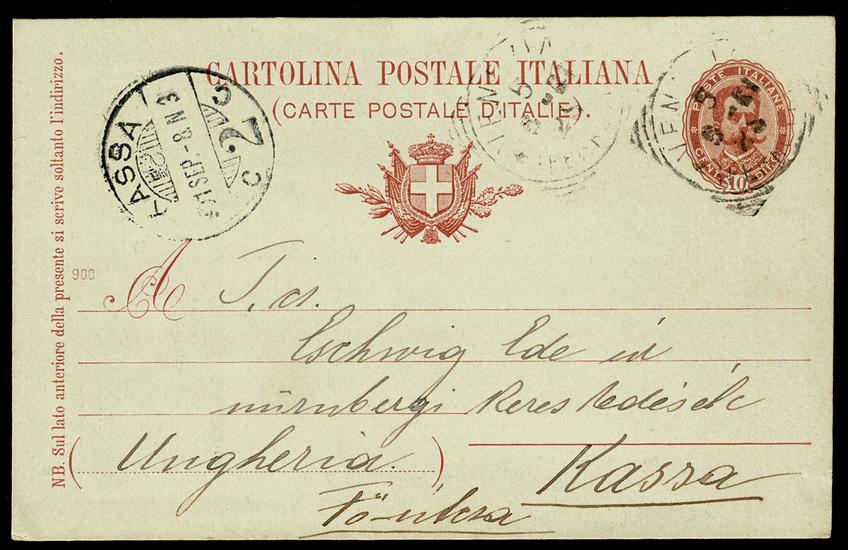 CARTOLINA POSTALE ITALIANA
(CARTE POSTALE D'ITALIE).
POSTE ITALIANE
10
KASSA
SEP. -8 N3
C 2 3
VEN
NB. Sul lato anteriore della presente si scrive soltanto l'indirizzo.
900
A T. cz.
Eschwig Ede úr
nürnbergi kereskedések
Ungheria.
Kassa
Fő-utcza